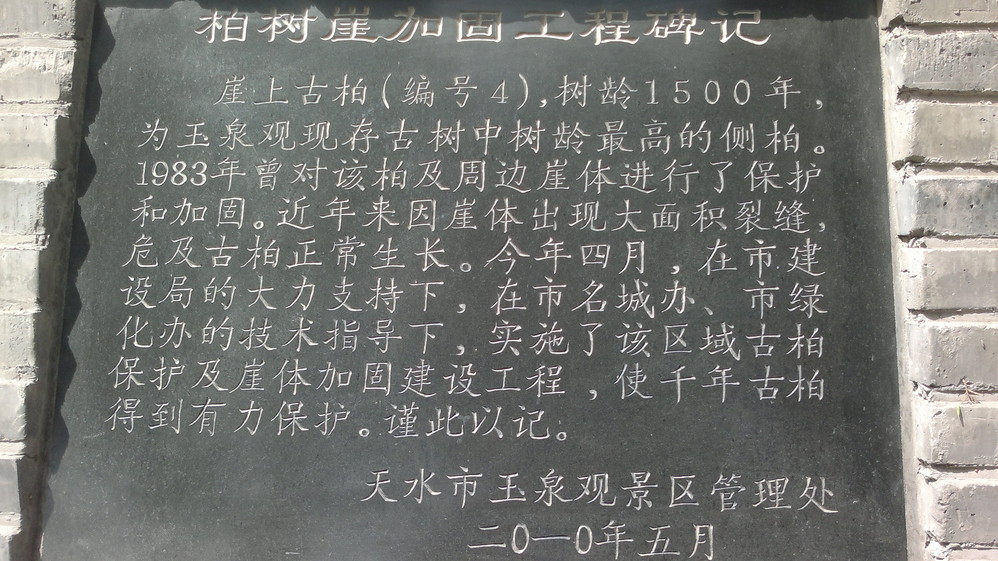 柏树崖加固工程碑记
崖上古柏(编号4),树龄1500年,
为玉泉观现存古树中树龄最高的侧柏。
1983年曾对该柏及周边崖体进行了保护
和加固。近年来因崖体出现大面积裂缝,
危及古柏正常生长。今年四月,在市建
设局的大力支持下,在市名城办、市绿
化办的技术指导下,实施了该区域古柏
保护及崖体加固建设工程,使千年古柏
得到有力保护。谨此以记。
天水市玉泉观景区管理处
二0一0年五月